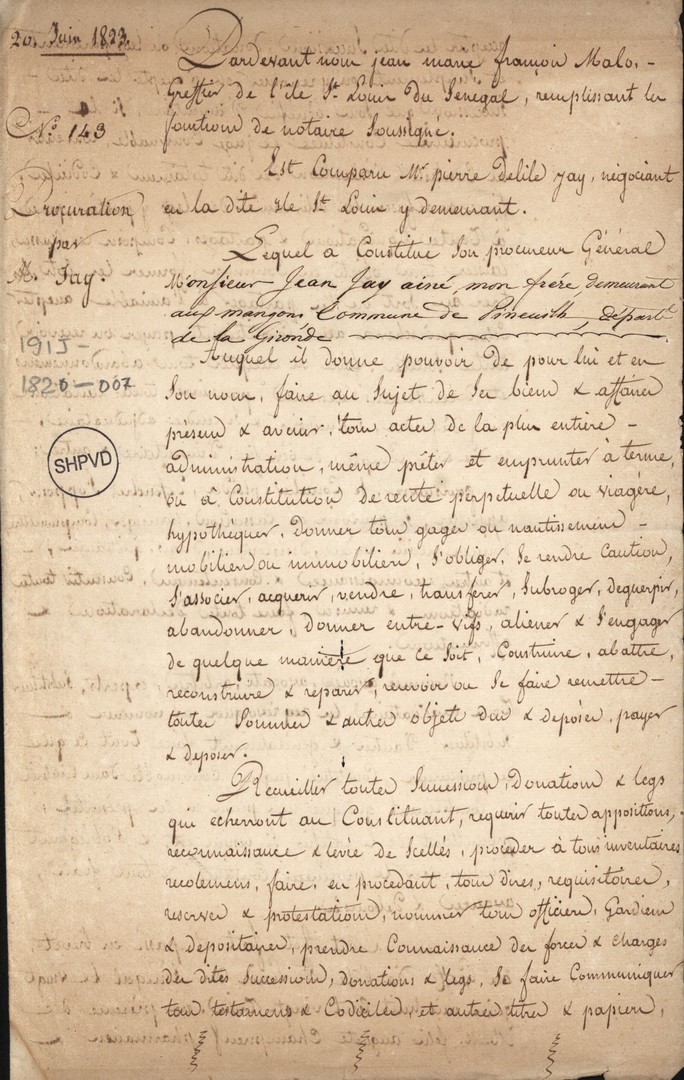 20. Juin 1823.
N.° 143
Procuration
par
M. Jay.
1915-
1820-007
SHPVD
Pardevant nous jean marie françois Malo, -
Greffier de l'île St. Louis du Sénégal, remplissant les
fonctions de notaire Soussigné.
Est Comparu Mr. pierre Delile Jay, négociant
en la dite Ile St. Louis y demeurant.
Lequel a Constitué Son procureur Général
Monsieur Jean Jay ainé, mon frére, demeurant
aux mangons Commune de Pineuilh, départt.
de la Gironde
Auquel il donne pouvoir, de pour lui et en
Son nom, faire au Sujet de Ses biens & affaires
présens & avenir, tous actes de la plus entière -
administration, même prêter et emprunter à terme,
ou à Constitution de rente perpetuelle ou viagère,
hypothéquer, donner tous gages ou nantissemens -
mobiliers ou immobiliers, S'obliger, Se rendre Caution,
S'associer, acquerir, vendre, transferer, Subroger, deguerpir,
abandonner, donner entre-vifs, aliéner & S'engager
de quelque manière que ce Soit, Construire, abattre,
reconstruire & reparer, recevoir ou Se faire remettre -
toutes Sommes & autres objets dus & deposés, payer
& deposer.
Recueillir toutes Successions, Donations & legs
qui echerront au Constituant, requerir toutes appositions,
reconnaissance & levée de Scellés, procéder à tous inventaires
recolemens, faire, en procedant, tous dires, requisitoires,
reserves & protestations, nommer tous officiers, Gardiens
& depositaires, prendre Connaissance des forces & charges
des dites Successions, donations & legs, Se faire Communiquer
tous testamens & Codiciles, et autres titres & papiers,